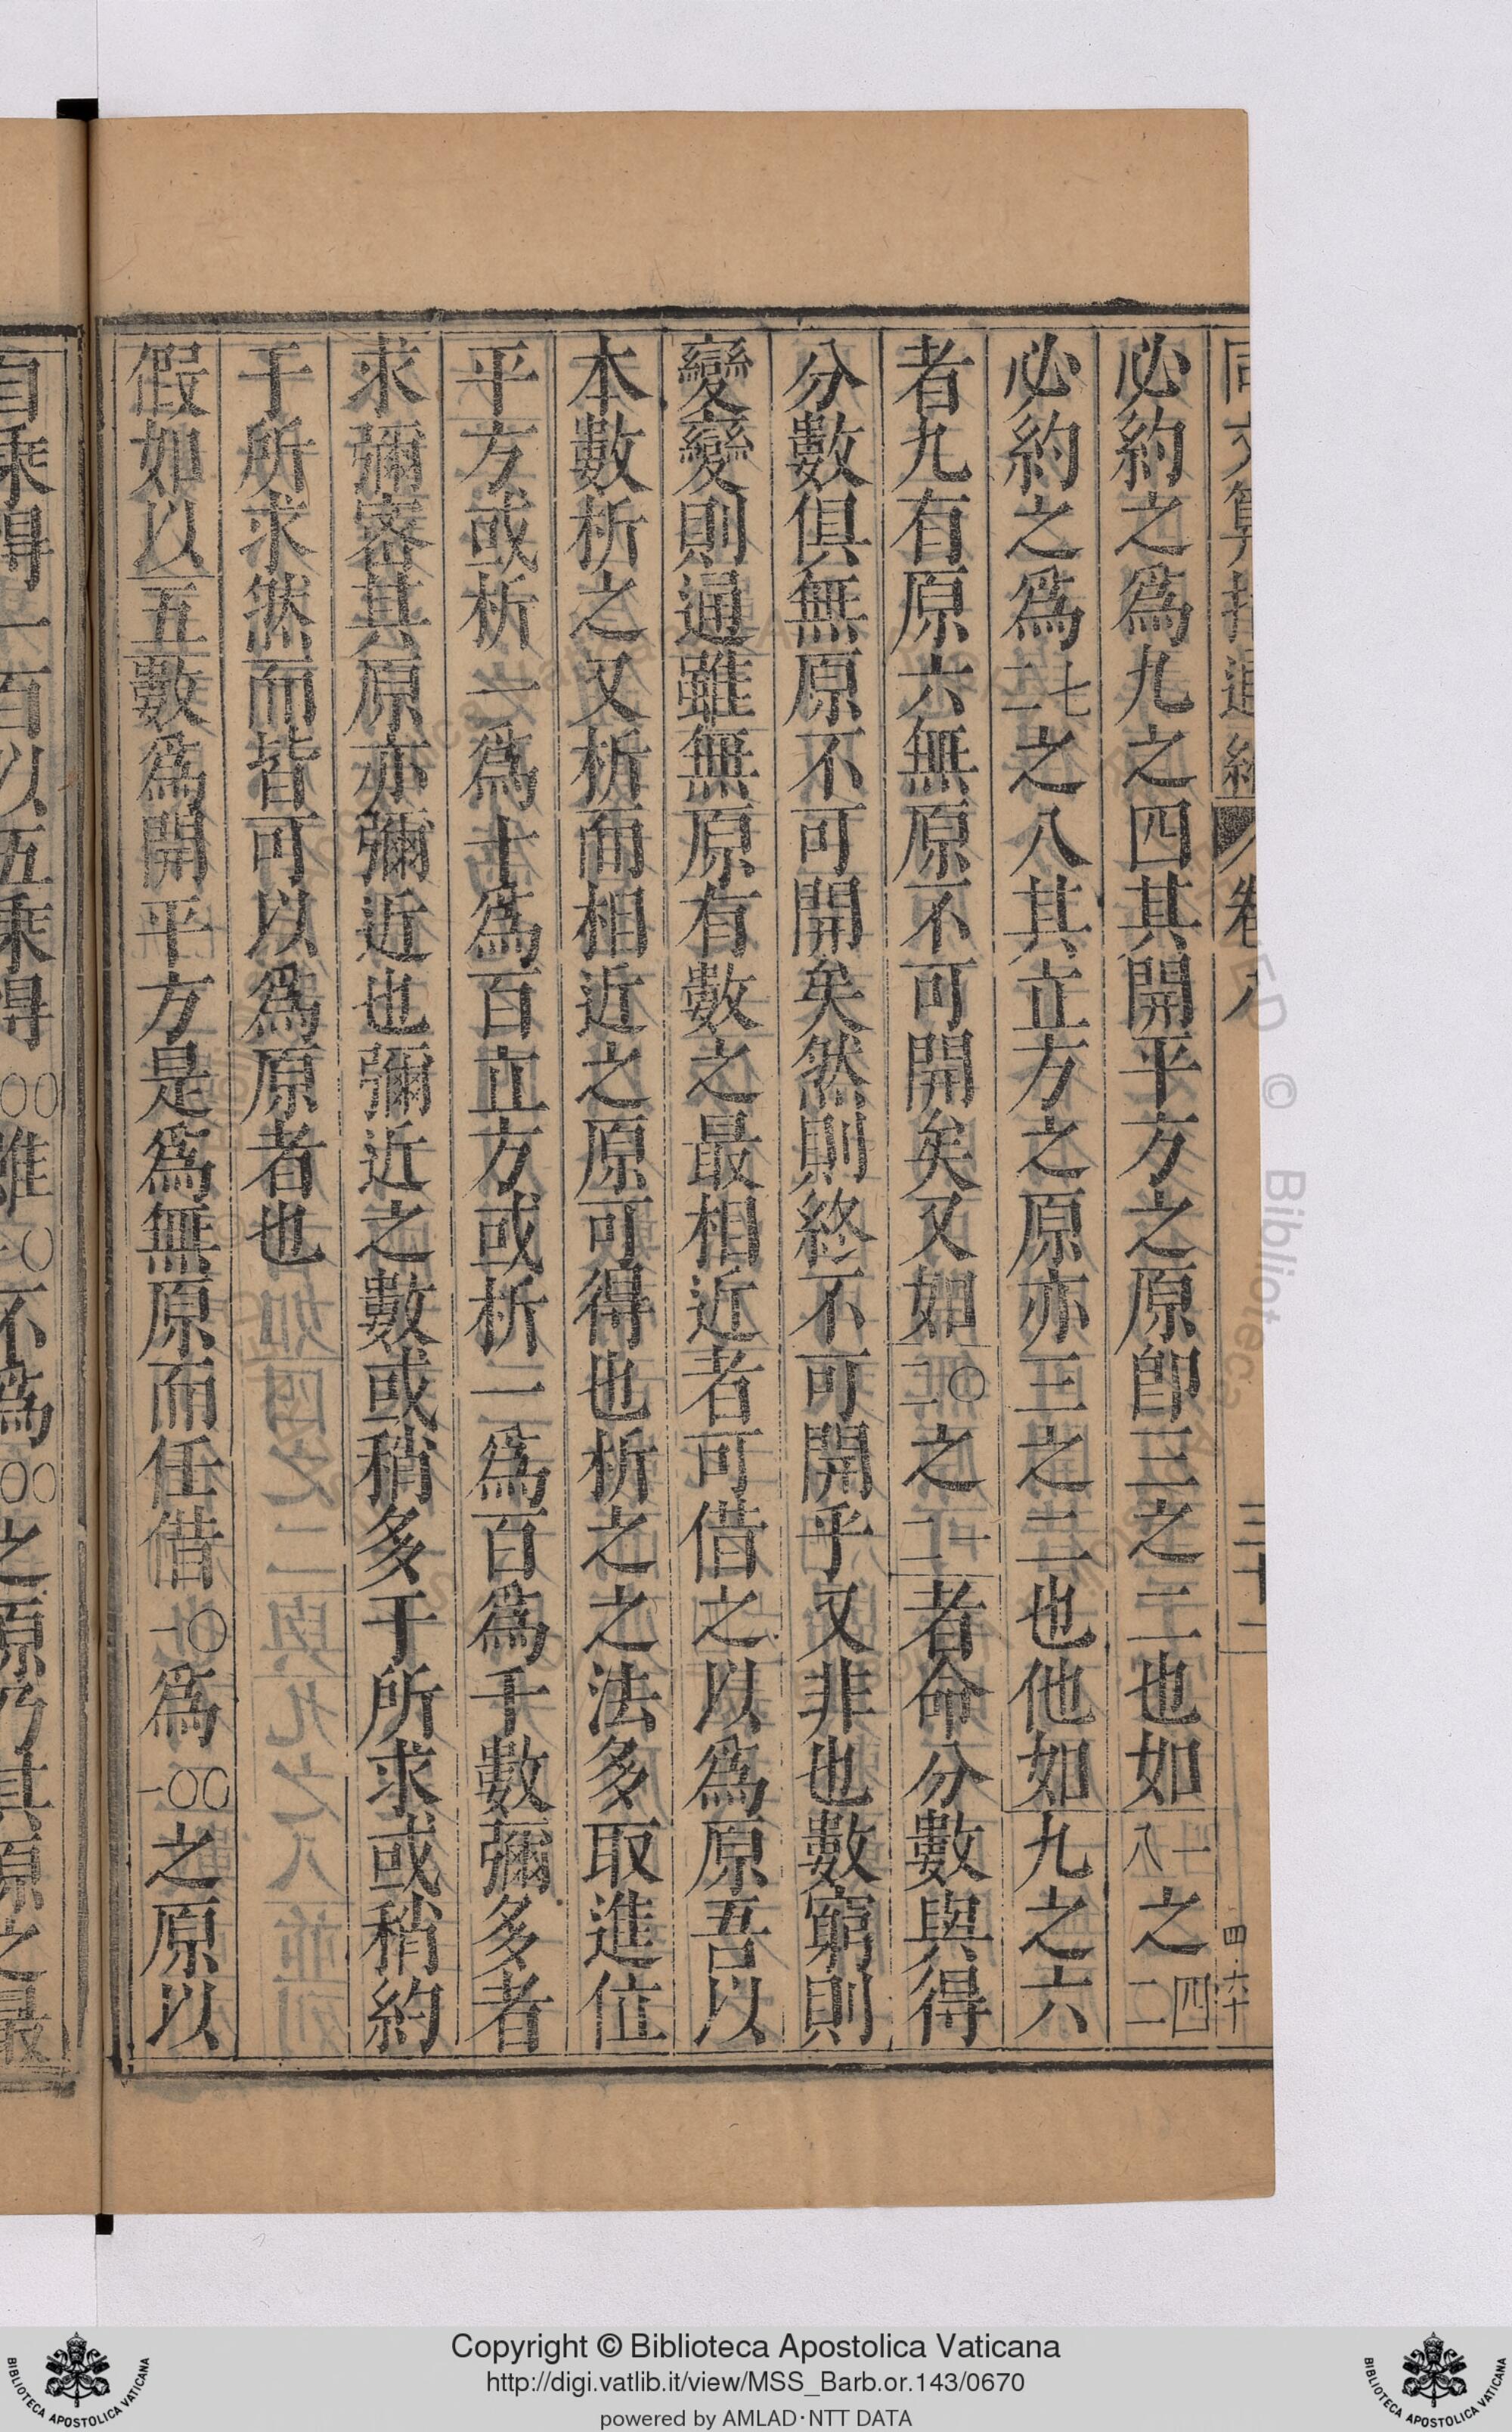 同文算指通編 卷八
必約之爲九之四其開平方之原卽三之二也如八一之二四
必約之爲二七之八其立方之原亦三之二也他如九之六
者九有原六無原不可開矣又如二〇之二一者命分數與得
分數俱無原不可開矣然則終不可開乎又非也數窮則
變變則通雖無原有數之最相近者可借之以爲原吾以
本數析之又析而相近之原可得也析之之法多取進位
平方或析一爲十爲百立方或析一爲百爲千數彌多者
求彌密其原亦彌近也彌近之數或稍多于所求或稍約
于所求然而皆可以爲原者也
假如以五數爲開平方是爲無原而任借一〇爲一〇〇之原以
自乘得一百以五乘得〇〇雖〇不爲〇〇之原乃其原之最
Copyright © Biblioteca Apostolica Vaticana
http://digi.vatlib.it/view/MSS_Barb.or.143/0670
powered by AMLAD·NTT DATA
BIBLIOTECA APOSTOLICA VATICANA
BIBLIOTECA APOSTOLICA VATICANA